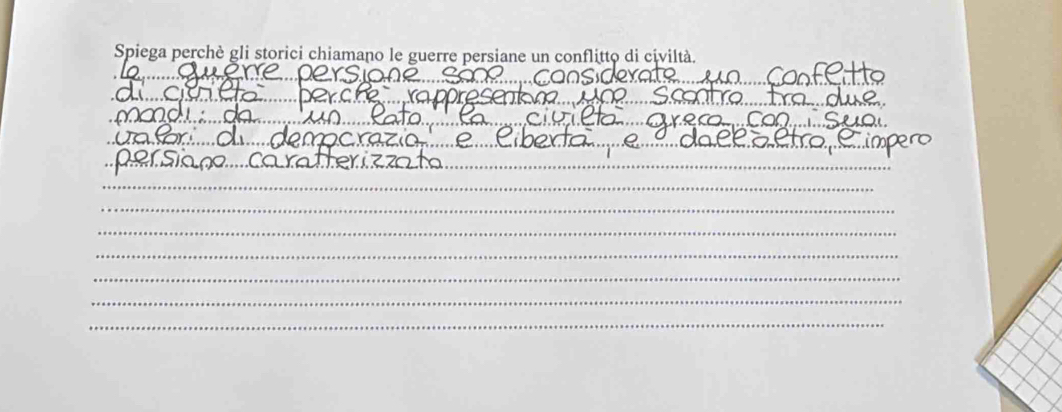 Spiega perchè gli storici chiamano le guerre persiane un conflitto di civiltà.
le guerre persiane sono considerate un conflitto
di civiltà perché rappresentano uno scontro tra due
mondi: da un lato, la civiltà greca con i suoi
valori di democrazia e libertà e dall'altro, l'impero
persiano caratterizzato